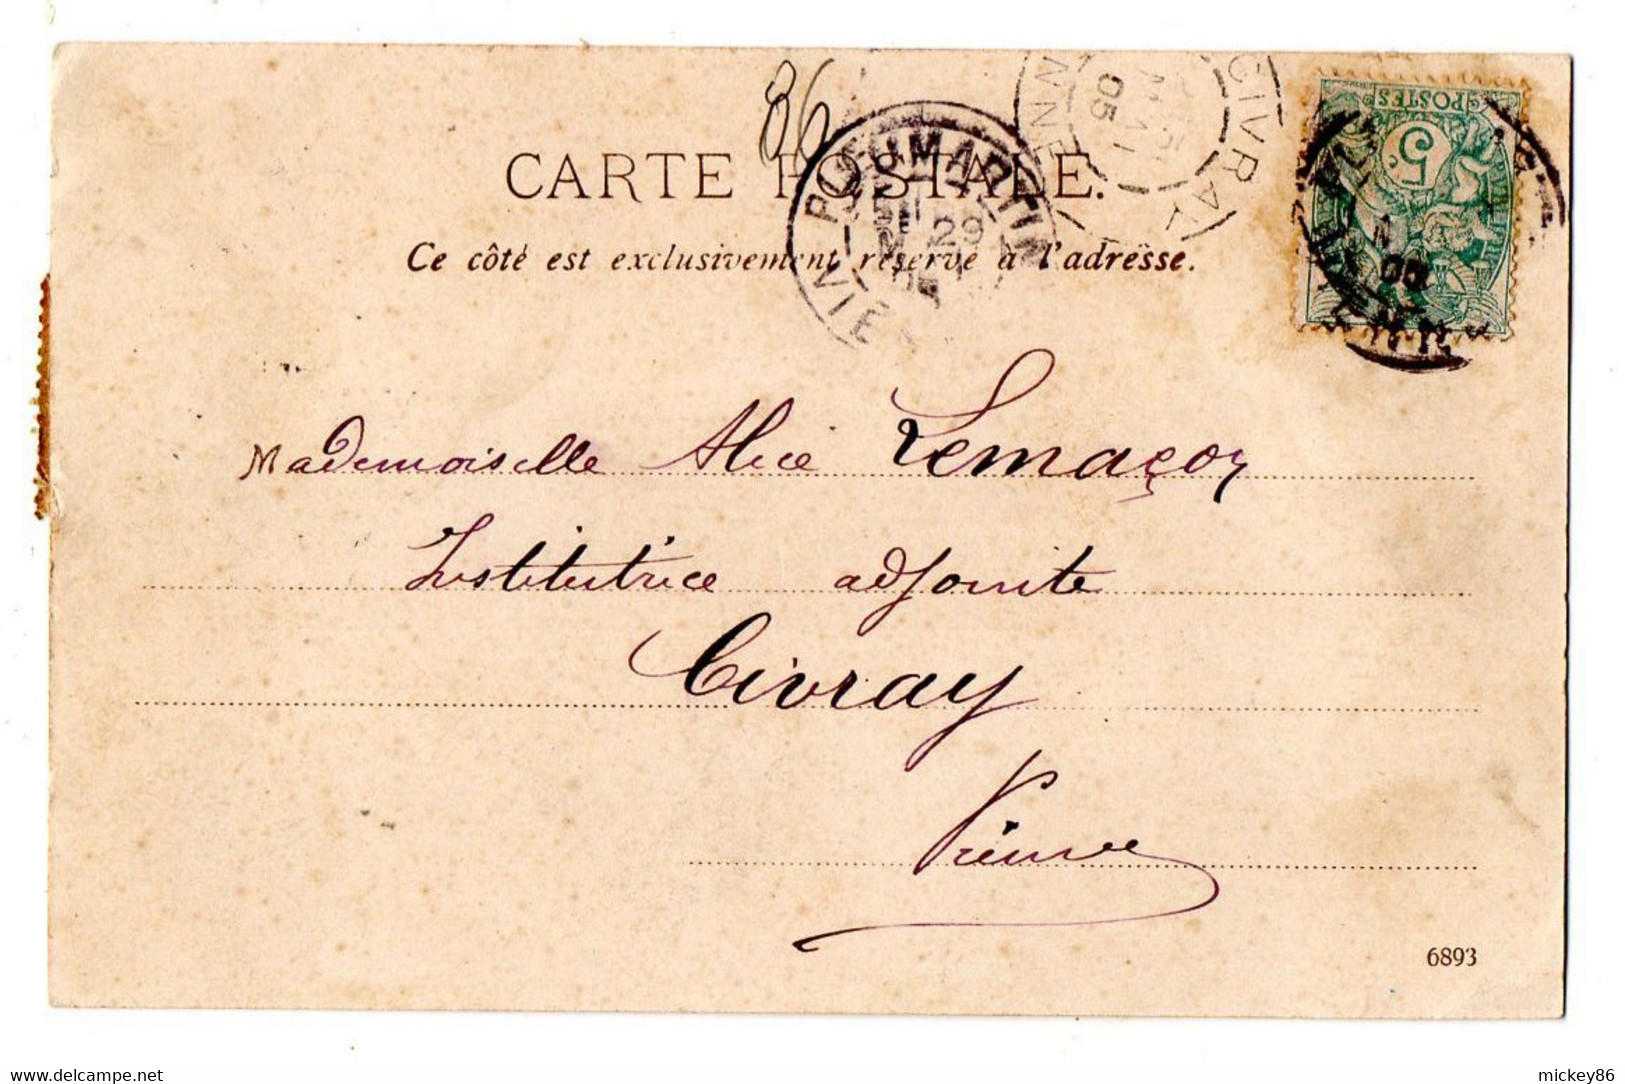 86
CARTE POSTALE.
Ce côté est exclusivement réservé à l'adresse.
PLEUMARTIN
29
05
VIE
CIVRAY
NNE
05
POSTES
5c
Mademoiselle Alice Lemaçon
Institutrice adjointe
Civray
Vienne
6893
delcampe.net
mickey86